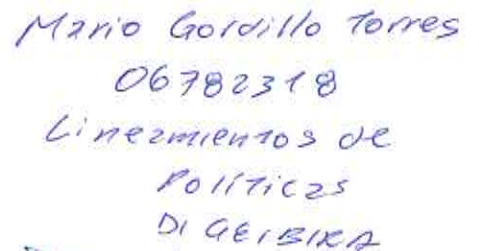 Mario Gordillo Torres
06782318
Lineamientos de
Políticas
DIGEIBIRA